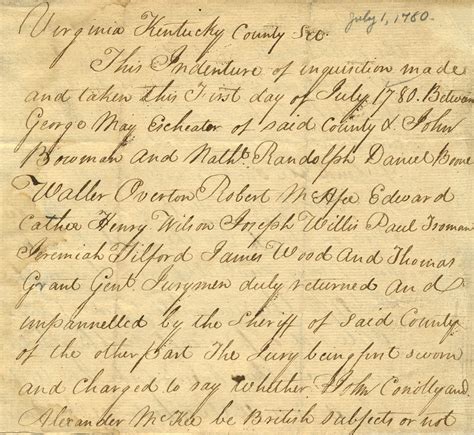 Virginia Kentucky County Sct. July 1, 1780.
This Indenture of inquisition made
and taken this First day of July 1780. Between
George May Escheator of said County & John
Bowman And Nathl. Randolph Daniel Boone
Waller Overton Robert McAfee Edward
Cather Henry Wilson Joseph Willis Paul Froman
Jeremiah Tilford James Wood And Thomas
Grant Gent. Jurymen duly returned and
impannelled by the Sheriff of said County
of the other part The Jury being first sworn
and charged to say whether John Conolly and
Alexander McKee be British subjects or not